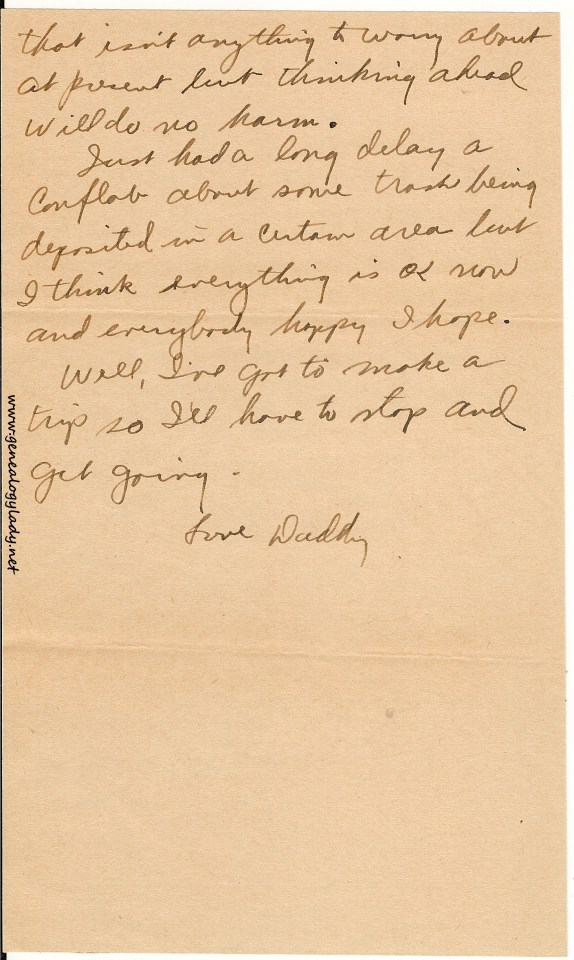 that isn't anything to worry about
at present but thinking ahead
will do no harm.
Just had a long delay a
Conflab about some trash being
deposited in a certain area but
I think everything is OK now
and everybody happy I hope.
Well, I've got to make a
trip so I'll have to stop and
get going -
Love Daddy
www.genealogylady.net